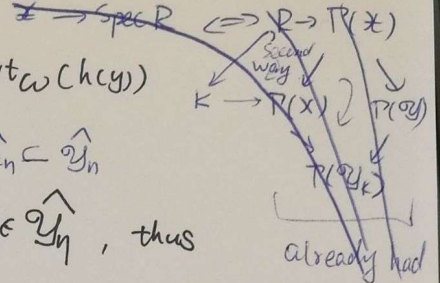 𝒳 → Spec R ⟺ R → Γ(𝒳)
t_ω(h(y))
Second
way
K → Γ(X) Γ(𝒴)
_n ⊂ 𝒴̂_η
Γ(𝒴_K)
∈ 𝒴̂_η , thus
already had